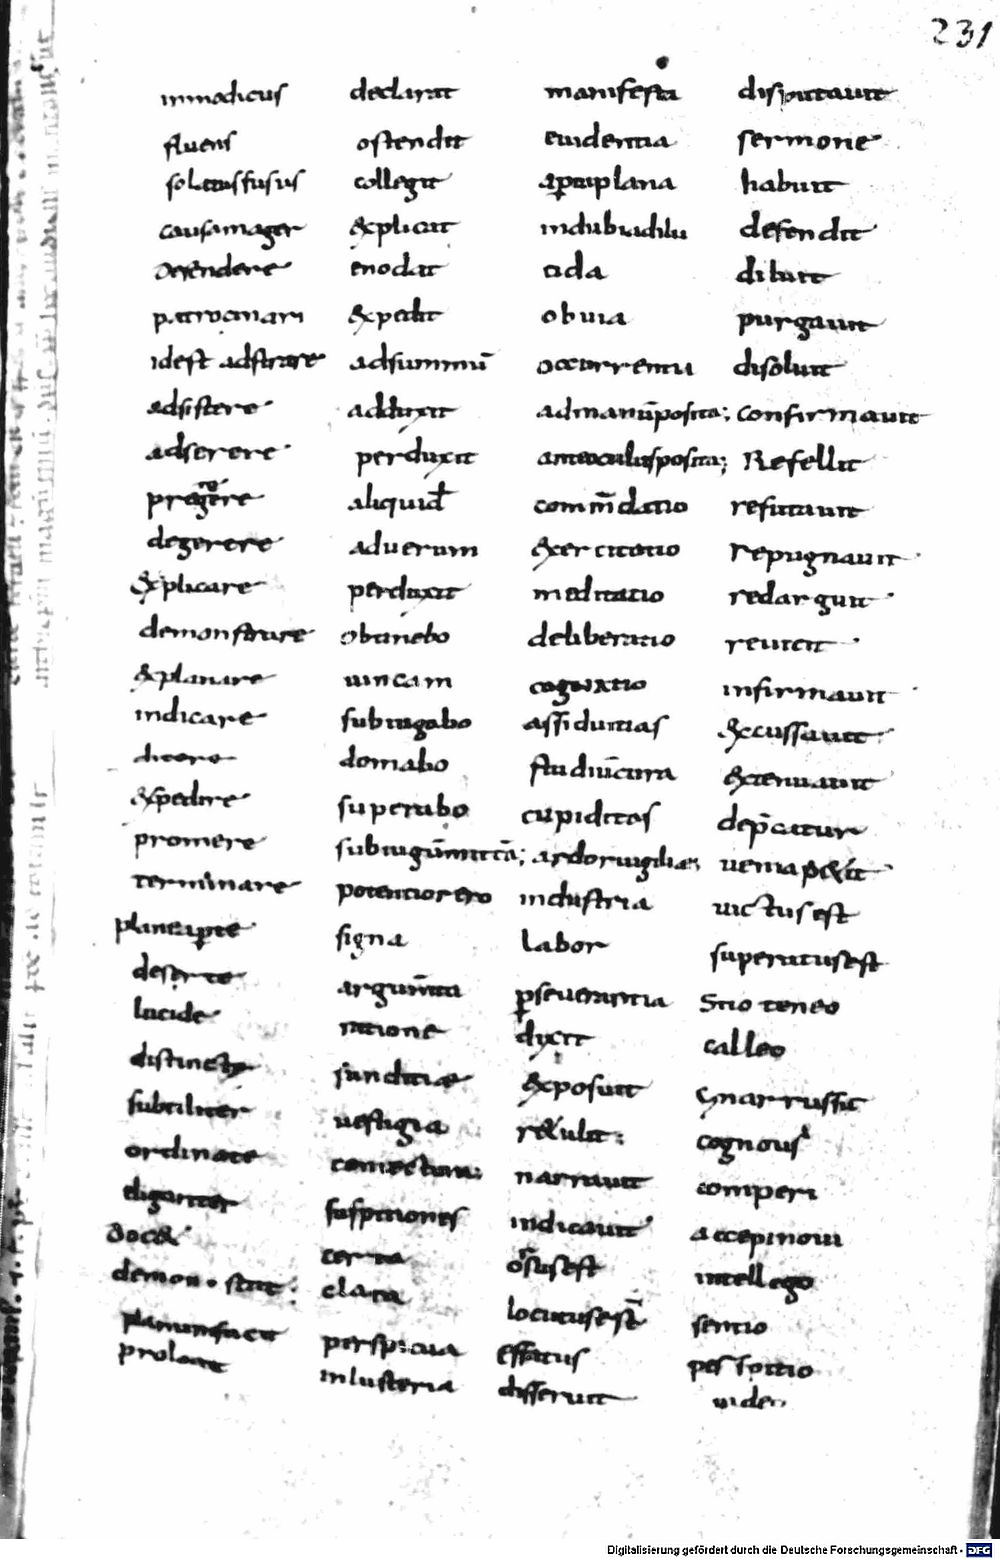 231
inmodicus
fluens
solutus fusus
causam ager
defendere
patrocinari
idest adstrare
adsistere
adserere
pregerere
degerere
explicare
demonstrare
explanare
indicare
dicere
expedire
promere
terminare
plane apte
deserte
lucide
distincte
subtiliter
ordinate
eliganter
docet
demonstrat
planum facit
prolocat
declarat
ostendit
collegit
explicat
enodat
expedit
adsummū
adduxit
perduxit
aliquid
aduerum
perduxit
obtinebo
uincam
subiugabo
domabo
superabo
subiugūmittā;
potentior ero
signa
argumta
ratione
iunditiae
uestigia
coniectura;
suspitiones
certa
clara
perspicua
inlusteria
manifesta
euidentia
aptuplana
indubiadilu
cida
obuia
occurrentu
admanūposita;
anteoculusposita;
comm̄datio
exercitatio
meditatio
deliberatio
cogitatio
assiduitas
studiūcura
cupiditas
ardor uigilia;
industria
labor
pseuerantia
dixit
exposuit
retulit;
narrauit
indicauit
orsus est
locutus est
effatus
disseruit
disputauit
sermone
habuit
defendit
diluit
purgauit
disoluit
confirmauit
Refellit
refutauit
repugnauit
redarguit
reuicit
infirmauit
excussauit
extenuauit
dep̄catur
uenia petit
uictus est
superatus est
Scio teneo
calleo
gnarrussic
cognoui
comperi
accepi noui
intellego
sentio
uideo
Digitalisierung gefördert durch die Deutsche Forschungsgemeinschaft - DFG